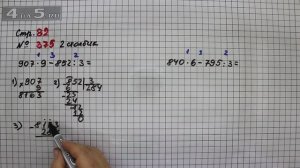 4 5.RU
Стр. 82
№ 375 2 столбик
1 3 2
907 · 9 - 852 : 3 =
1 3 2
840 · 6 - 795 : 3 =
1) × 907
9
8163
2) 852 3
6 284
25
24
12
12
0
3) - 8163